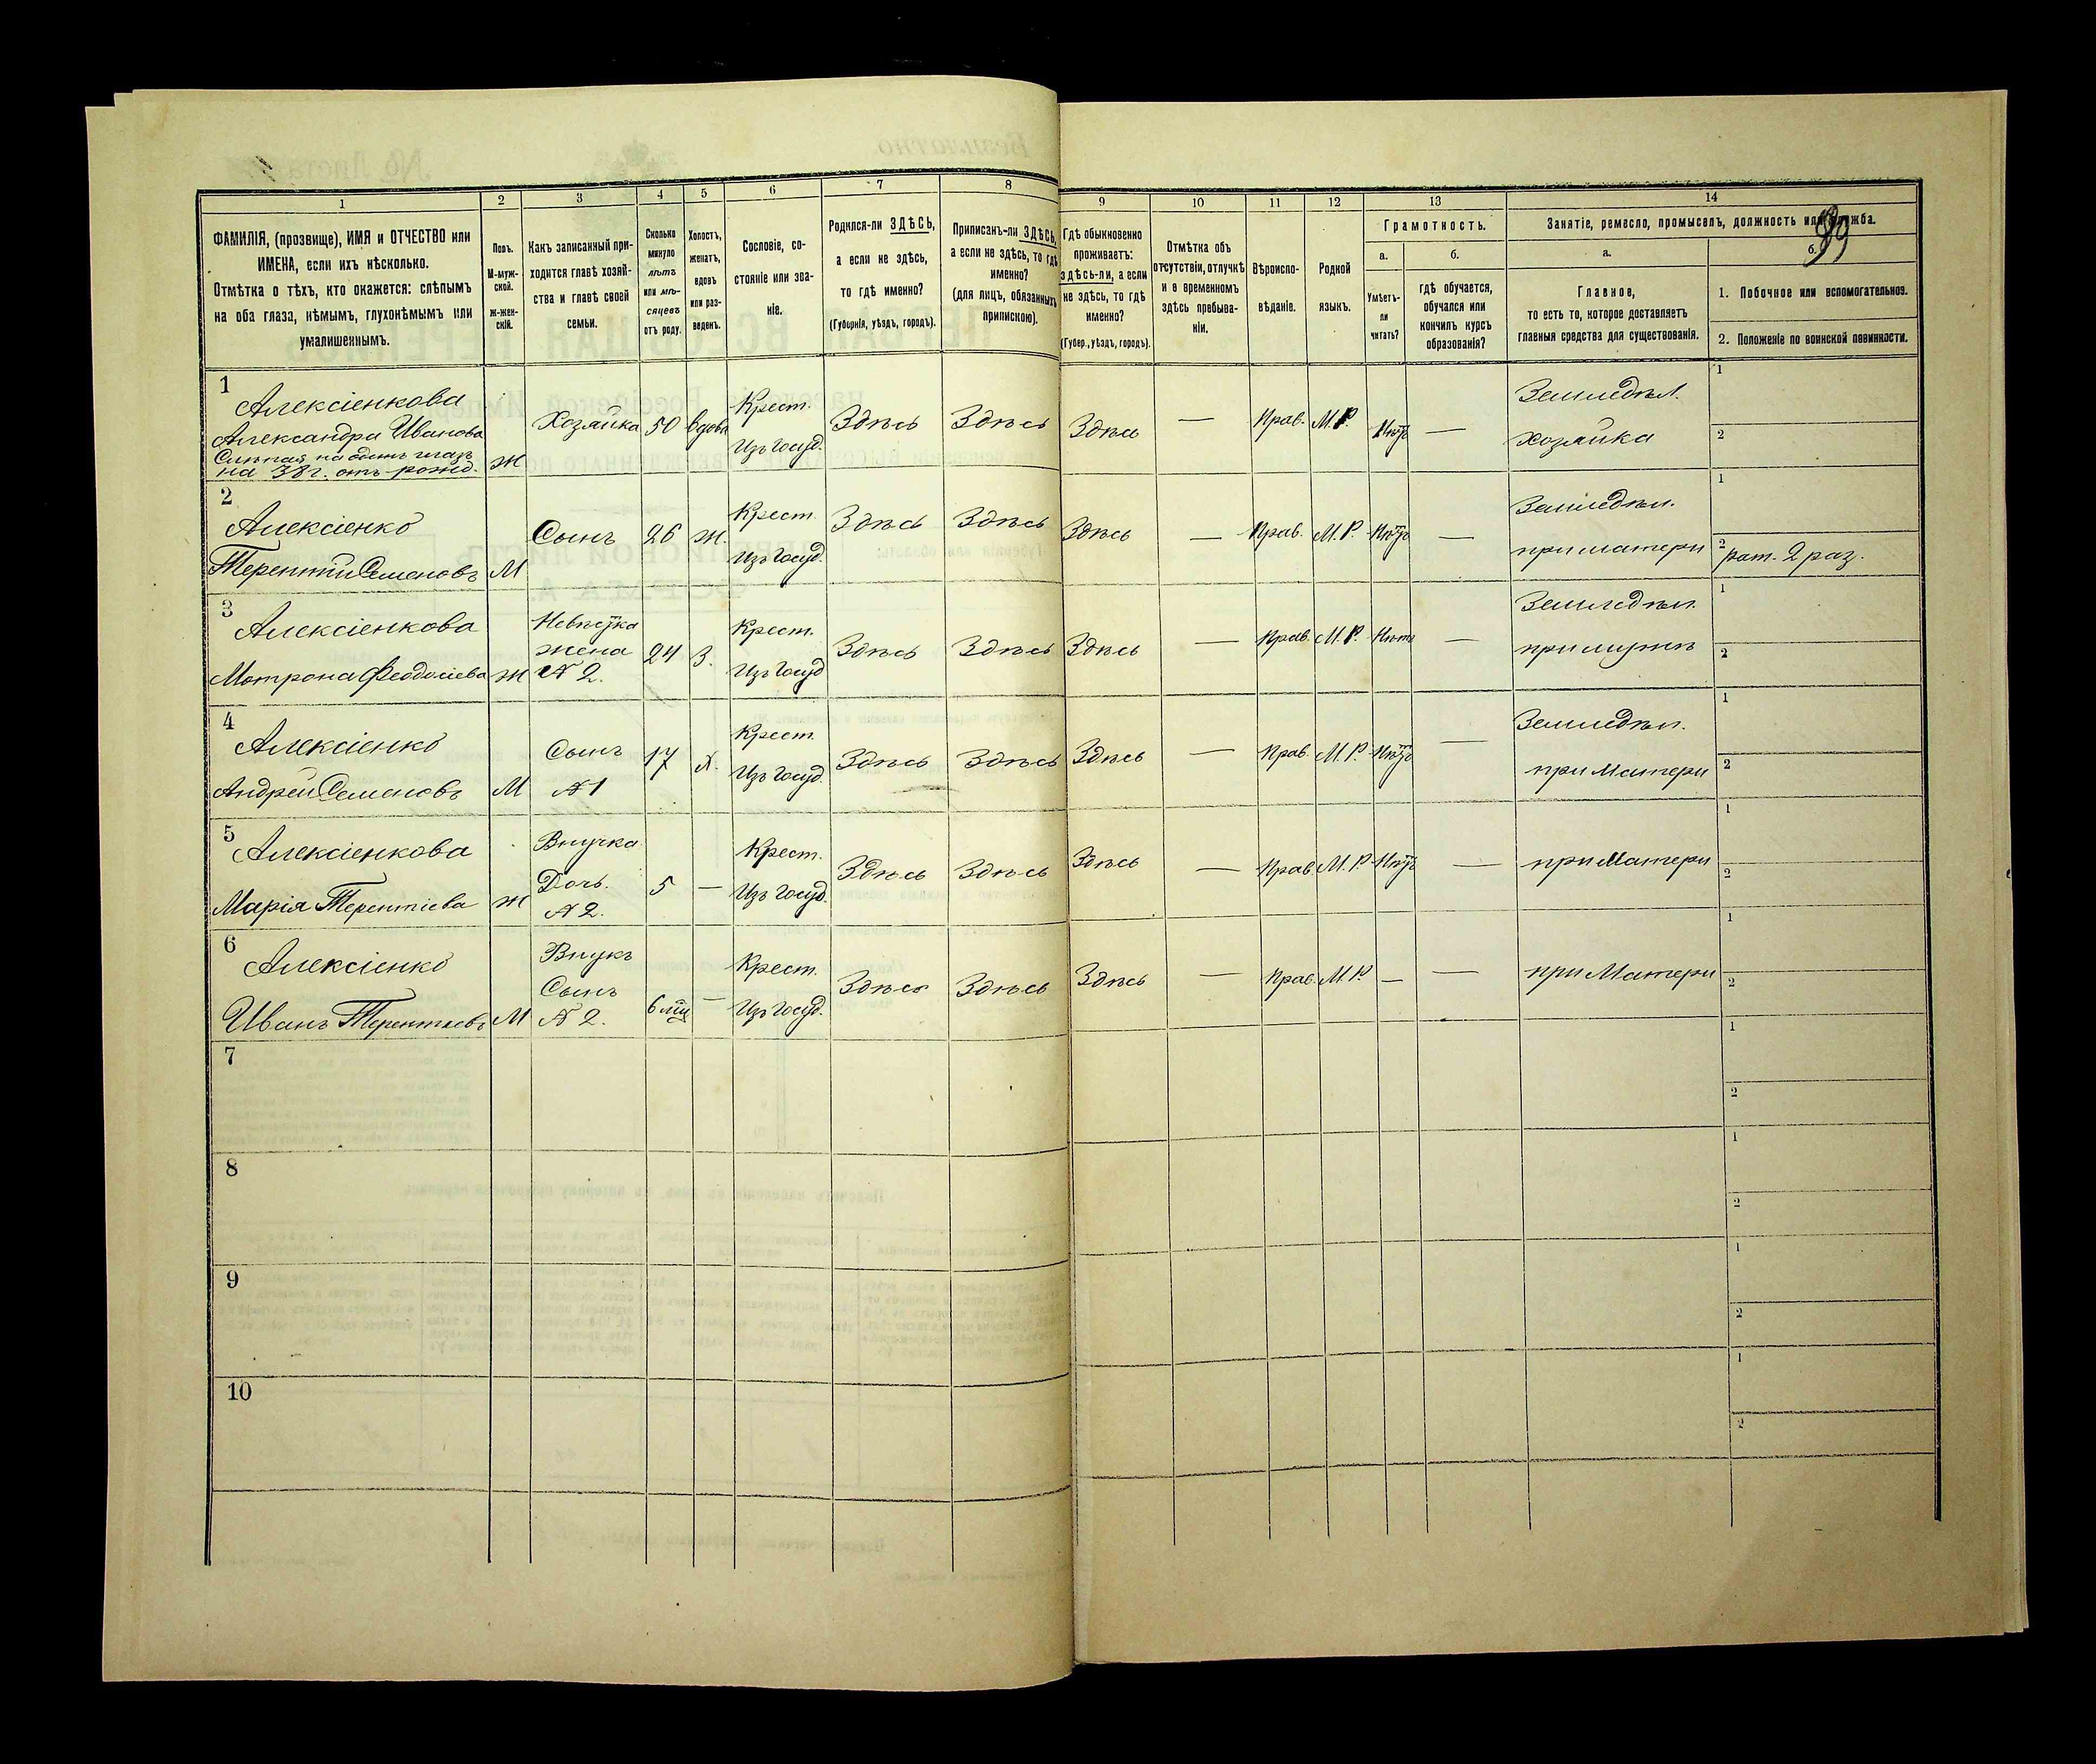 89
1 2 3 4 5 6 7 8 9 10 11 12 13 14
ФАМИЛІЯ, (прозвище), ИМЯ и ОТЧЕСТВО или
ИМЕНА, если ихъ нѣсколько.
Отмѣтка о тѣхъ, кто окажется: слѣпымъ
на оба глаза, нѣмымъ, глухонѣмымъ или
умалишеннымъ.
Полъ.
М-муж-
ской.
Ж-жен-
скій.
Какъ записанный при-
ходится главѣ хозяй-
ства и главѣ своей
семьи.
Сколько
минуло
лѣтъ
или мѣ-
сяцевъ
отъ роду.
Холостъ,
женатъ,
вдовъ
или раз-
веденъ.
Сословіе, со-
стояніе или зва-
ніе.
Родился-ли ЗДѢСЬ,
а если не здѣсь,
то гдѣ именно?
(Губернія, уѣздъ, городъ).
Приписанъ-ли ЗДѢСЬ,
а если не здѣсь, то гдѣ
именно?
(для лицъ, обязанныхъ
припискою).
Гдѣ обыкновенно
проживаетъ:
здѣсь-ли, а если
не здѣсь, то гдѣ
именно?
(Губер., уѣздъ, городъ).
Отмѣтка объ
отсутствіи, отлучкѣ
и о временномъ
здѣсь пребыва-
ніи.
Вѣроиспо-
вѣданіе.
Родной
языкъ.
Грамотность.
а.
Умѣетъ-
ли
читать?
б.
гдѣ обучается,
обучался или
кончилъ курсъ
образованія?
Занятіе, ремесло, промыселъ, должность или служба.
а.
Главное,
то есть то, которое доставляетъ
главныя средства для существованія.
б.
1. Побочное или вспомогательное.
2. Положеніе по воинской повинности.
1
Алексіенкова
Александра Иванова
Слѣпая на одинъ глазъ
на 38 г. отъ рожд.
ж
Хозяйка
50
вдова
Крест.
Изъ госуд.
Здѣсь
Здѣсь
Здѣсь
—
Прав.
М.Р.
Нѣтъ
—
Земледѣл.
хозяйка
1
2
2
Алексіенко
Терентій Семеновъ
М
Сынъ
26
ж.
Крест.
Изъ госуд.
Здѣсь
Здѣсь
Здѣсь
—
Прав.
М.Р.
Нѣтъ
—
Земледѣл.
при матери
1
2
рат. 2 раз.
3
Алексіенкова
Матрона Феодосіева
ж
Невѣстка
жена
№ 2.
24
З.
Крест.
Изъ госуд
Здѣсь
Здѣсь
Здѣсь
—
Прав.
М.Р.
Нѣтъ
—
Земледѣл.
при мужѣ
1
2
4
Алексіенко
Андрей Семеновъ
М
Сынъ
№ 1
17
Х.
Крест.
Изъ госуд.
Здѣсь
Здѣсь
Здѣсь
—
Прав.
М.Р.
Нѣтъ
—
Земледѣл.
при Матери
1
2
5
Алексіенкова
Марія Терентіева
ж
Внучка
Дочь.
№ 2.
5
—
Крест.
Изъ госуд.
Здѣсь
Здѣсь
Здѣсь
—
Прав.
М.Р.
Нѣтъ
—
при Матери
1
2
6
Алексіенко
Иванъ Терентіевъ
М
Внукъ
Сынъ
№ 2.
6 мц
—
Крест.
Изъ госуд.
Здѣсь
Здѣсь
Здѣсь
—
Прав.
М.Р.
—
—
при Матери
1
2
7
1
2
8
1
2
9
1
2
10
1
2